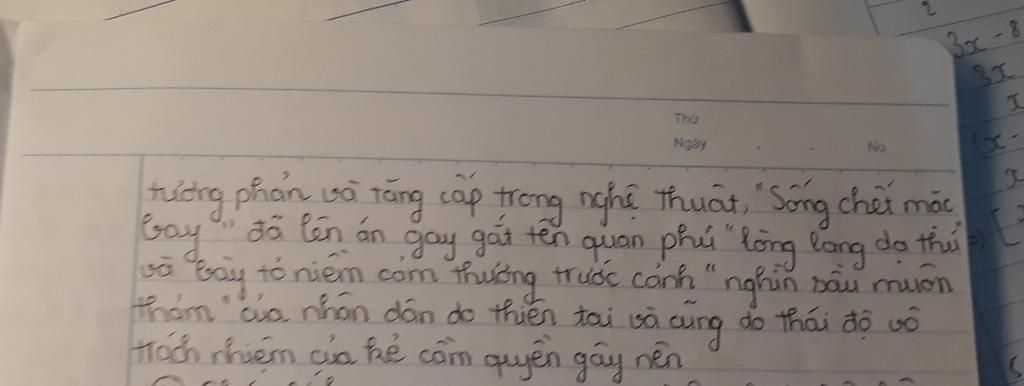 2
3x - 8
3x
x
Thứ
Ngày . . No.
tương phản và tăng cấp trong nghệ thuật, "Sống chết mặc
bay" đã lên án gay gắt tên quan phủ "lòng lang dạ thú
và bày tỏ niềm cảm thương trước cảnh "nghìn sầu muôn
thảm" của nhân dân do thiên tai và cũng do thái độ vô
trách nhiệm của kẻ cầm quyền gây nên